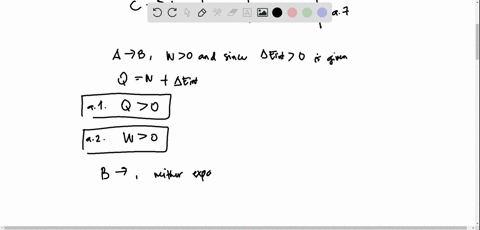 a.7
A → B, W > 0 and since ΔEint > 0 is given
Q = W + ΔEint
a.1. Q > 0
a.2. W > 0
B → , neither expa